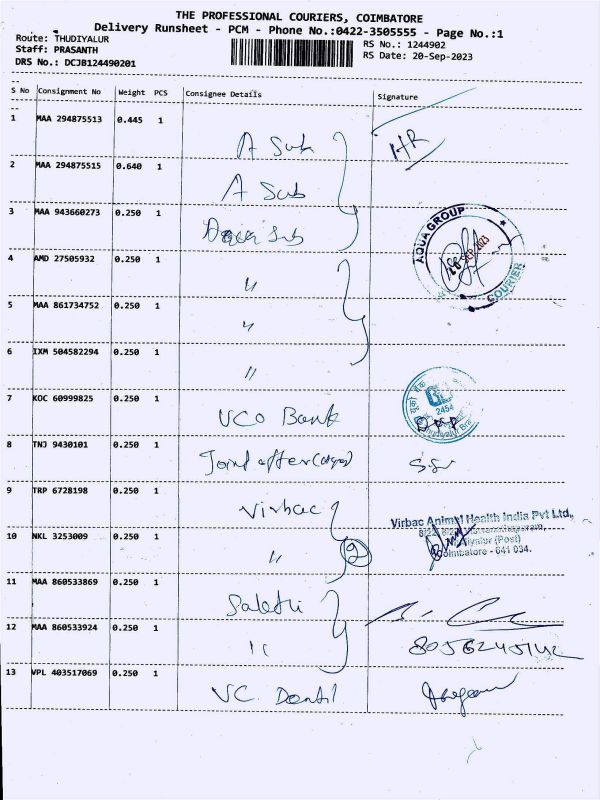 THE PROFESSIONAL COURIERS, COIMBATORE
Delivery Runsheet - PCM - Phone No.:0422-3505555 - Page No.:1
Route: THUDIYALUR
Staff: PRASANTH
DRS No.: DCJB124490201
RS No.: 1244902
RS Date: 20-Sep-2023
S No Consignment No Weight PCS Consignee Details Signature
1 MAA 294875513 0.445 1 A Sub HR
2 MAA 294875515 0.640 1 A Sub
3 MAA 943660273 0.250 1 Aqua Sub
AQUA GROUP
SEP 2023
COURIER
4 AMD 27505932 0.250 1 "
5 MAA 861734752 0.250 1 "
6 IXM 504582294 0.250 1 "
7 KOC 60999825 0.250 1 UCO Bank
2454
8 TNJ 9430101 0.250 1
9 TRP 6728198 0.250 1 Virbac
Virbac Animal Health India Pvt Ltd,
(Post)
Coimbatore - 641 034.
10 NKL 3253009 0.250 1 " 2
11 MAA 860533869 0.250 1
12 MAA 860533924 0.250 1 "
13 VPL 403517069 0.250 1 VC. Dentil